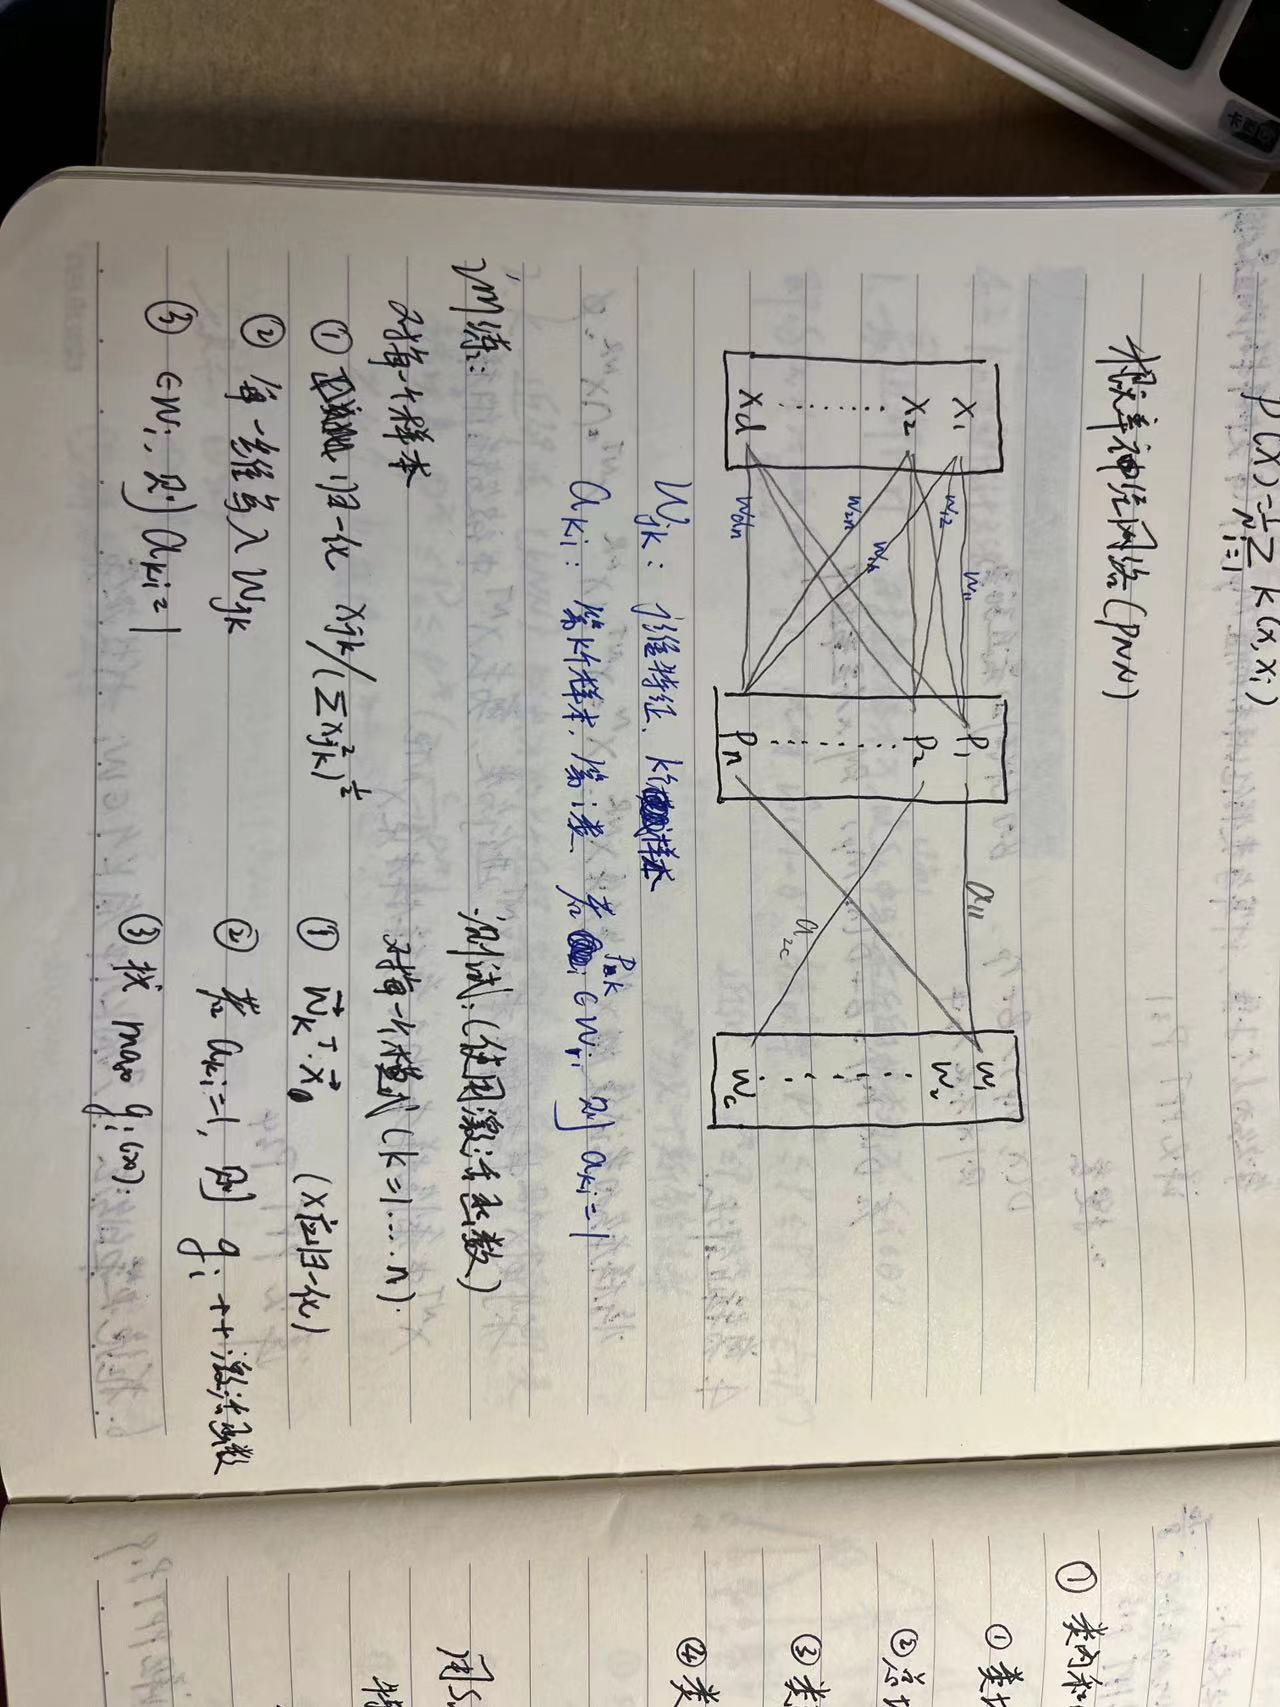 P(x) = 1/N Σ i=1 k(x, xi)
概率神经网络(PNN)
x1 x2 ...... xd
w11 w12 w1n w2n wdn
P1 P2 ...... Pn
a11 a2c
w1 w2 ...... wc
Wjk: j维特征、k个样本
aki: 第k个样本，第i类 若Pk∈Wi，则aki=1
训练：
对每一个样本
① 归一化 xjk/(Σxjk²)^½
② 每一维写入Wjk
③ ∈Wi，则aki=1
测试：(使用激活函数)
对每一个模式(k=1....n).
① Wk^T·x (x应归一化)
② 若aki=1，则gi ++激活函数
③ 找 max gi(x).
① 类内
① 类
② 总
③ 类
④ 类
用S
特